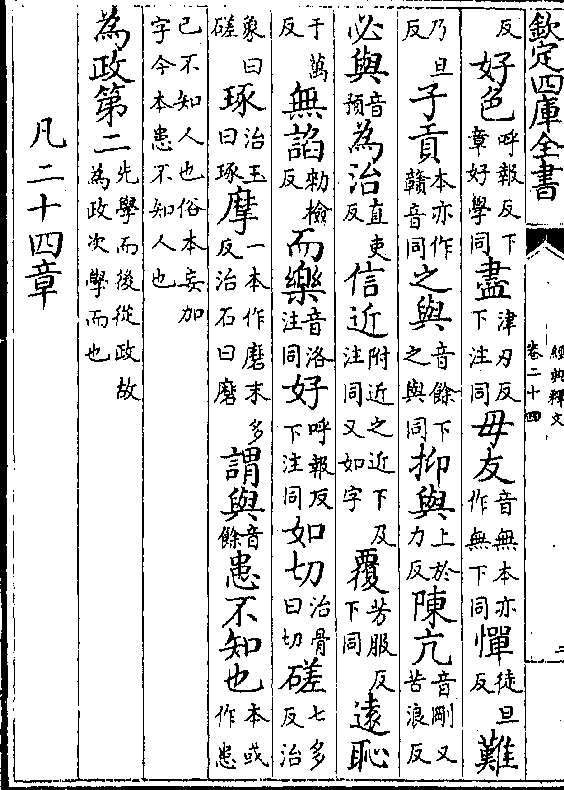 欽定四庫全書
經典釋文
卷二十四
二
反好色呼報反下章好學同盡津刃反下注同毋友音無本亦作無下同憚徒旦反難
乃旦反子貢本亦作贛音同之與音餘下之與同抑與上於力反陳亢音剛又苦浪反
必與音預為治直吏反信近附近之近下及注同又如字覆芳服反下同遠恥
于萬反無諂勑檢反而樂音洛注同好呼報反下注同如切治骨曰切磋七多反治
象曰磋琢治玉曰琢摩一本作磨末多反治石曰磨謂與音餘患不知也本或作患
己不知人也俗本妄加字今本患不知人也
為政第二先學而後從政故為政次學而也
凡二十四章